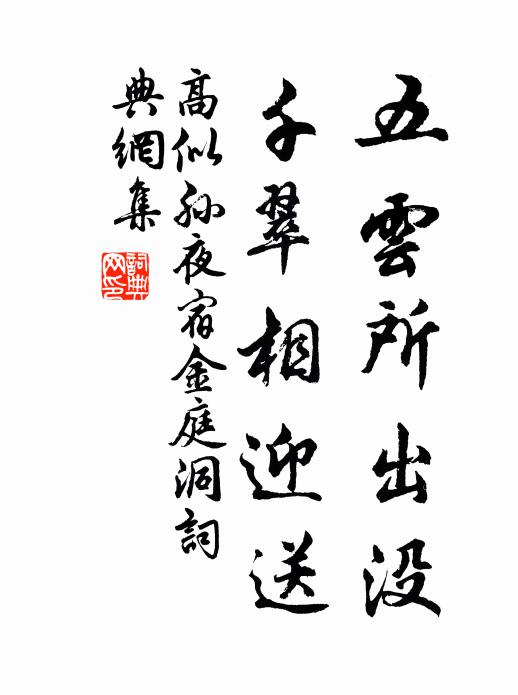 五雲所出没
千翠相迎送
高似孫夜宿金庭洞詞
典網集
詞典
网印